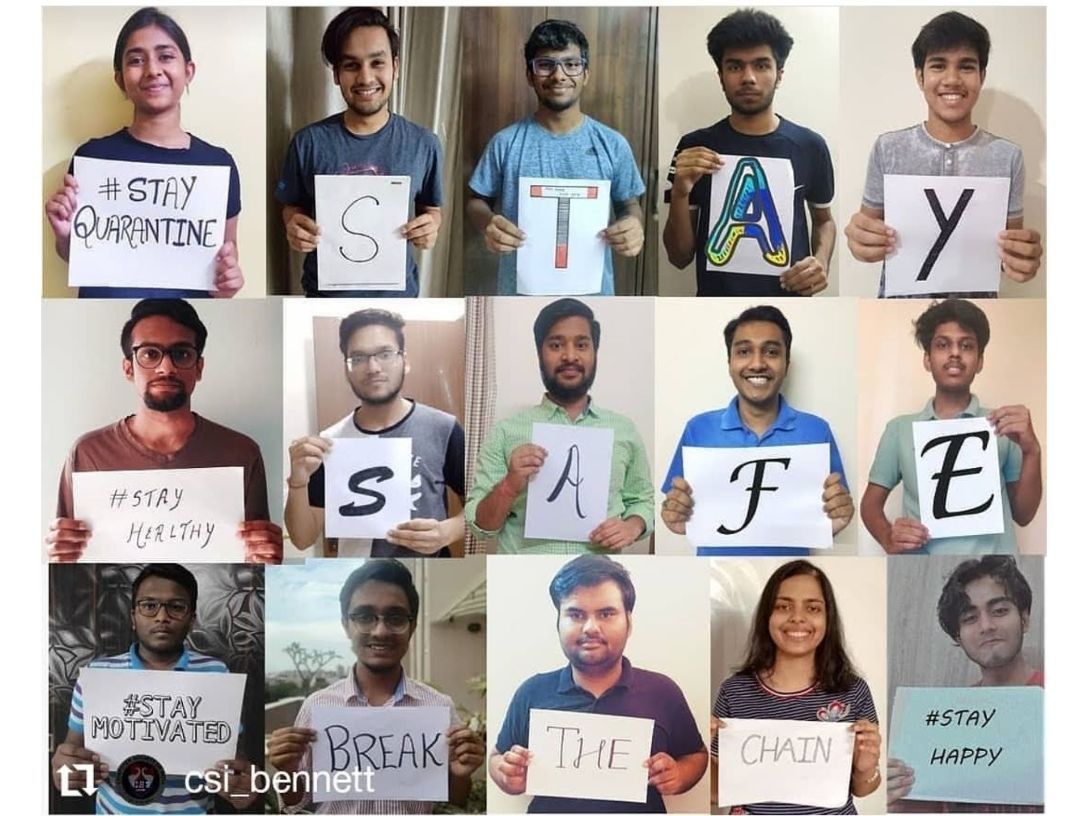 #STAY
QUARANTINE
S
T
A
Y
#STAY
HEALTHY
S
A
F
E
#STAY
MOTIVATED
BREAK
THE
CHAIN
#STAY
HAPPY
csi_bennett